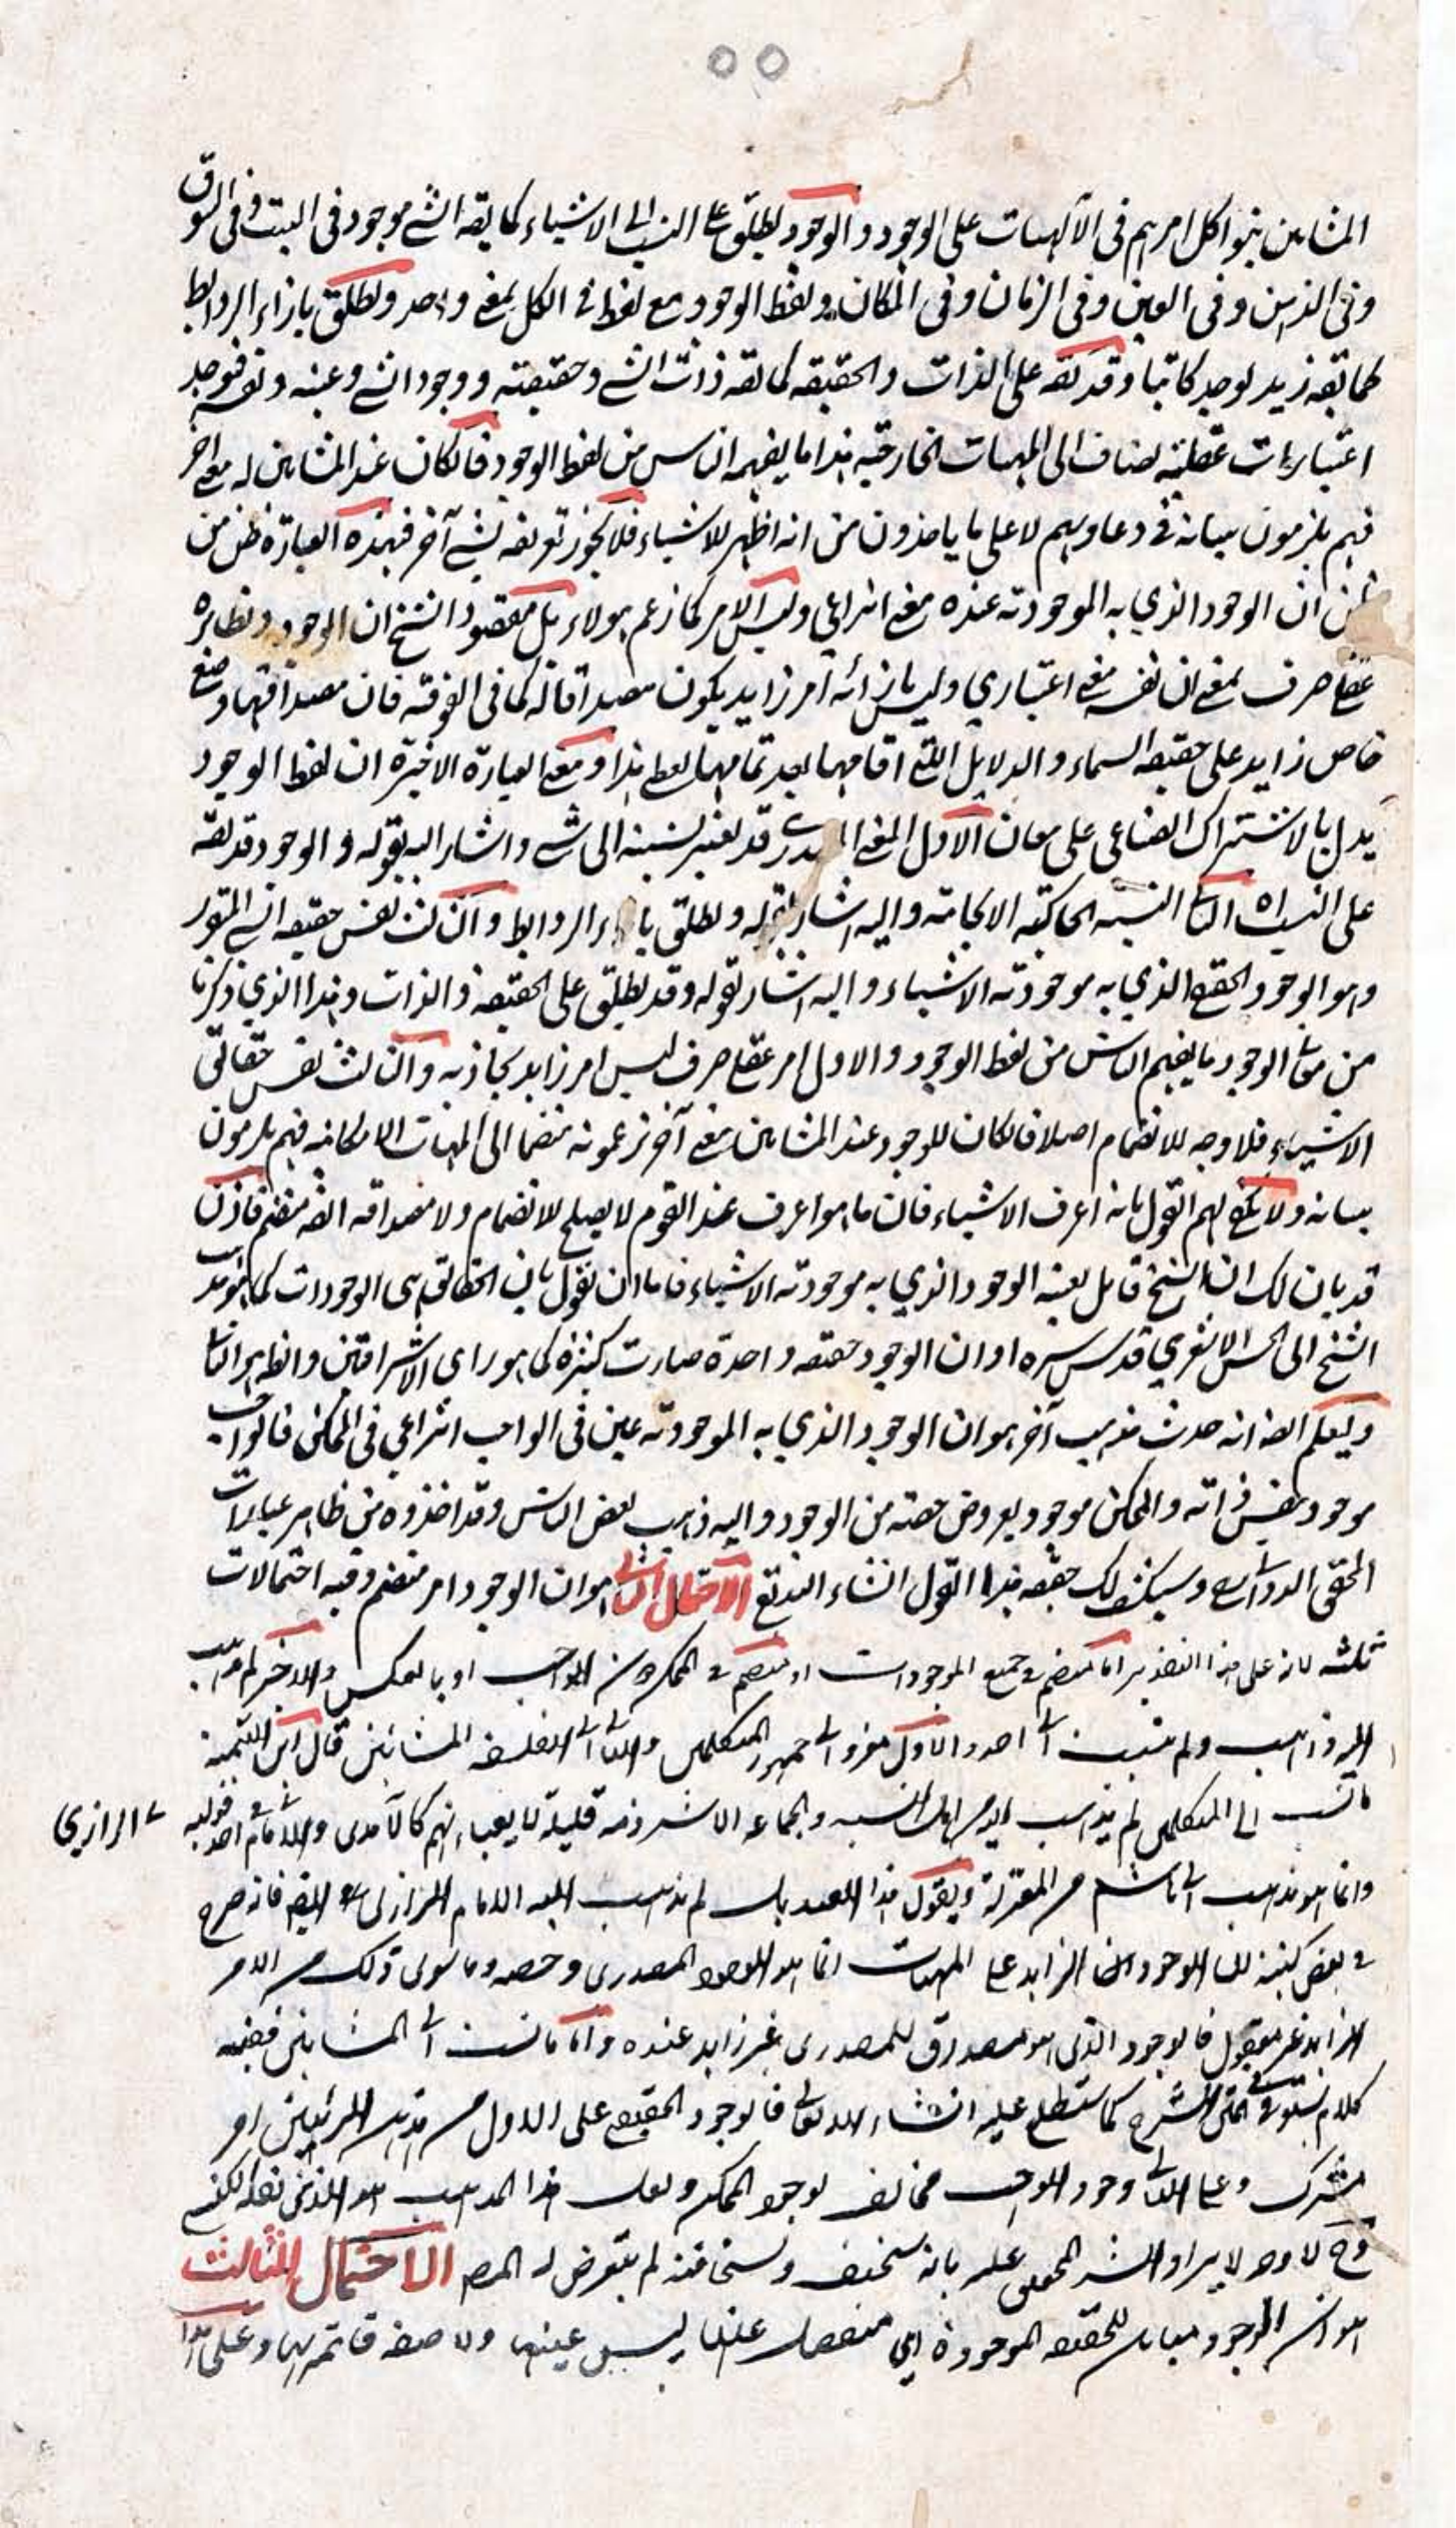 ٥٥
المشايين بنوا كل امرهم في الالهيات على الوجود والوجود يطلق على النسب الى الاشياء كما يقه الشي موجود في البيت وفي السوق
وفي الذهن وفي العين وفي الزمان وفي المكان ولفظ الوجود مع لفظ في الكل بمعنى واحد ويطلق بازاء الروابط
كما يقه زيد يوجد كاتبا وقد يقه على الذات والحقيقه كما يقه ذات الشي وحقيقته ووجود الشي وعينه ونفسه فتوجد
اعتبارات عقلية يضاف الى المهيات الخارجية هذا ما يفهم الناس من لفظ الوجود فان كان عند المشايين له معنى اخر
فهم يلزمون بيانه في دعاويهم لا على ما ياخذون من انه اظهر للاشياء فلا يجوز تعريفه بشي آخر فبهذه العبارة ظن من
ظن ان الوجود الذي به الموجودية عنده معنى انتزاعي وليس الامر كما زعم هولاء بل مقصود الشيخ ان الوجود ونظايره
عقلي صرف بمعنى ان نفسه معنى اعتباري وليس بازائه امر زايد يكون مصداقا له كما في الفوقية فان مصداقها وضع
خاص زايد على حقيقه السماء والدلايل التي اقامها بعد تمامها يعطي هذا ومعنى العبارة الاخيرة ان لفظ الوجود
يدل بالاشتراك الصناعي على معان الاول المعنى المصدري قد يعتبر نسبته الى شي واشار اليه بقوله والوجود قد يقه
على النسب اه الثاني النسبة الحاكية الايجابية واليه اشار بقوله ويطلق بازاء الروابط والثالث نفس حقيقه الشي المتقرر
وهو الوجود الحقيقي الذي به موجودية الاشياء واليه اشار بقوله وقد يطلق على الحقيقه والذات وهذا الذي ذكرنا
من معاني الوجود ما يفهم الناس من لفظ الوجود والاول امر عقلي صرف ليس امر زايد يحاذيه والثالث نفس حقائق
الاشياء فلا وجه للانضمام اصلا فان كان للوجود عند المشايين معنى آخر يزعمونه منضما الى المهيات الامكانيه فهم يلزمون
بيانه ولا يكفي لهم القول بانه اعرف الاشياء فان ما هو اعرف عند القوم لا يصلح للانضمام ولا مصداقه ايضه منضم فاذن
قد بان لك ان الشيخ قايل بعينيه الوجود الذي به موجودية الاشياء فاما ان نقول بان الحقائق هي الوجودات كما هو مذهب
الشيخ ابي الحسن الاشعري قدس سره او ان الوجود حقيقه واحدة صارت كثيرة كما هو راى الاشراقيين والظاهر الثاني
وليعلم ايضه انه حدث مذهب آخر هو ان الوجود الذي به الموجودية عين في الواجب انتزاعي في الممكن فالواجب
موجود بنفس ذاته والممكن موجود بعروض حصته من الوجود واليه ذهب بعض الناس وقد اخذوه من ظاهر عبارات
المحقق الدواني وسيكشف لك حقيقه هذا القول انشاء الله تع الاحتمال الثاني هو ان الوجود امر منضم وفيه احتمالات
ثلثه لانه على هذا التقدير اما منضم في جميع الموجودات او منضم في الممكن دون الواجب او بالعكس والاخير لم يذهب
اليه ذاهب ولم ينسب الى احد والاول معزو الى جمهور المتكلمين والثاني الى الفلسفه المشائين قال
ما نسب الى المتكلمين لم يذهب اليه من اهل السنه والجماعه الا شرذمه قليلة لا يعباء بهم كالآمدي والامام في احد قوليه
الرازي
وانما هو مذهب ابي هاشم من المعتزلة ويقول هذا العبد بل لم يذهب اليه الامام الرازي ايضه فانه صرح
في بعض كتبه ان الوجود الزايد على المهيات انما هو الوجود المصدري وحصه وما سوى ذلك من الامر
الزايد غير معقول فالوجود الذي هو مصداق للمصدري غير زايد عنده واما ما نسب الى المشايين ففيه
كلام في الشرح كما ستطلع عليه انشاء الله تعالى فالوجود الحقيقي على الاول من امر
مشترك وعلى الثاني وجود الواجب مخالف لوجود الممكن ولعل هذا المذهب هو الذي نقله
وح لا وجه لايراد المحقق عليه بانه سخيف ولسخافته لم يتعرض له المصه الاحتمال الثالث
هو ان الوجود مباين للحقيقه الموجودة اي منفصل عنها ليس عينها ولا صفه قائمه بها وعلى هذا